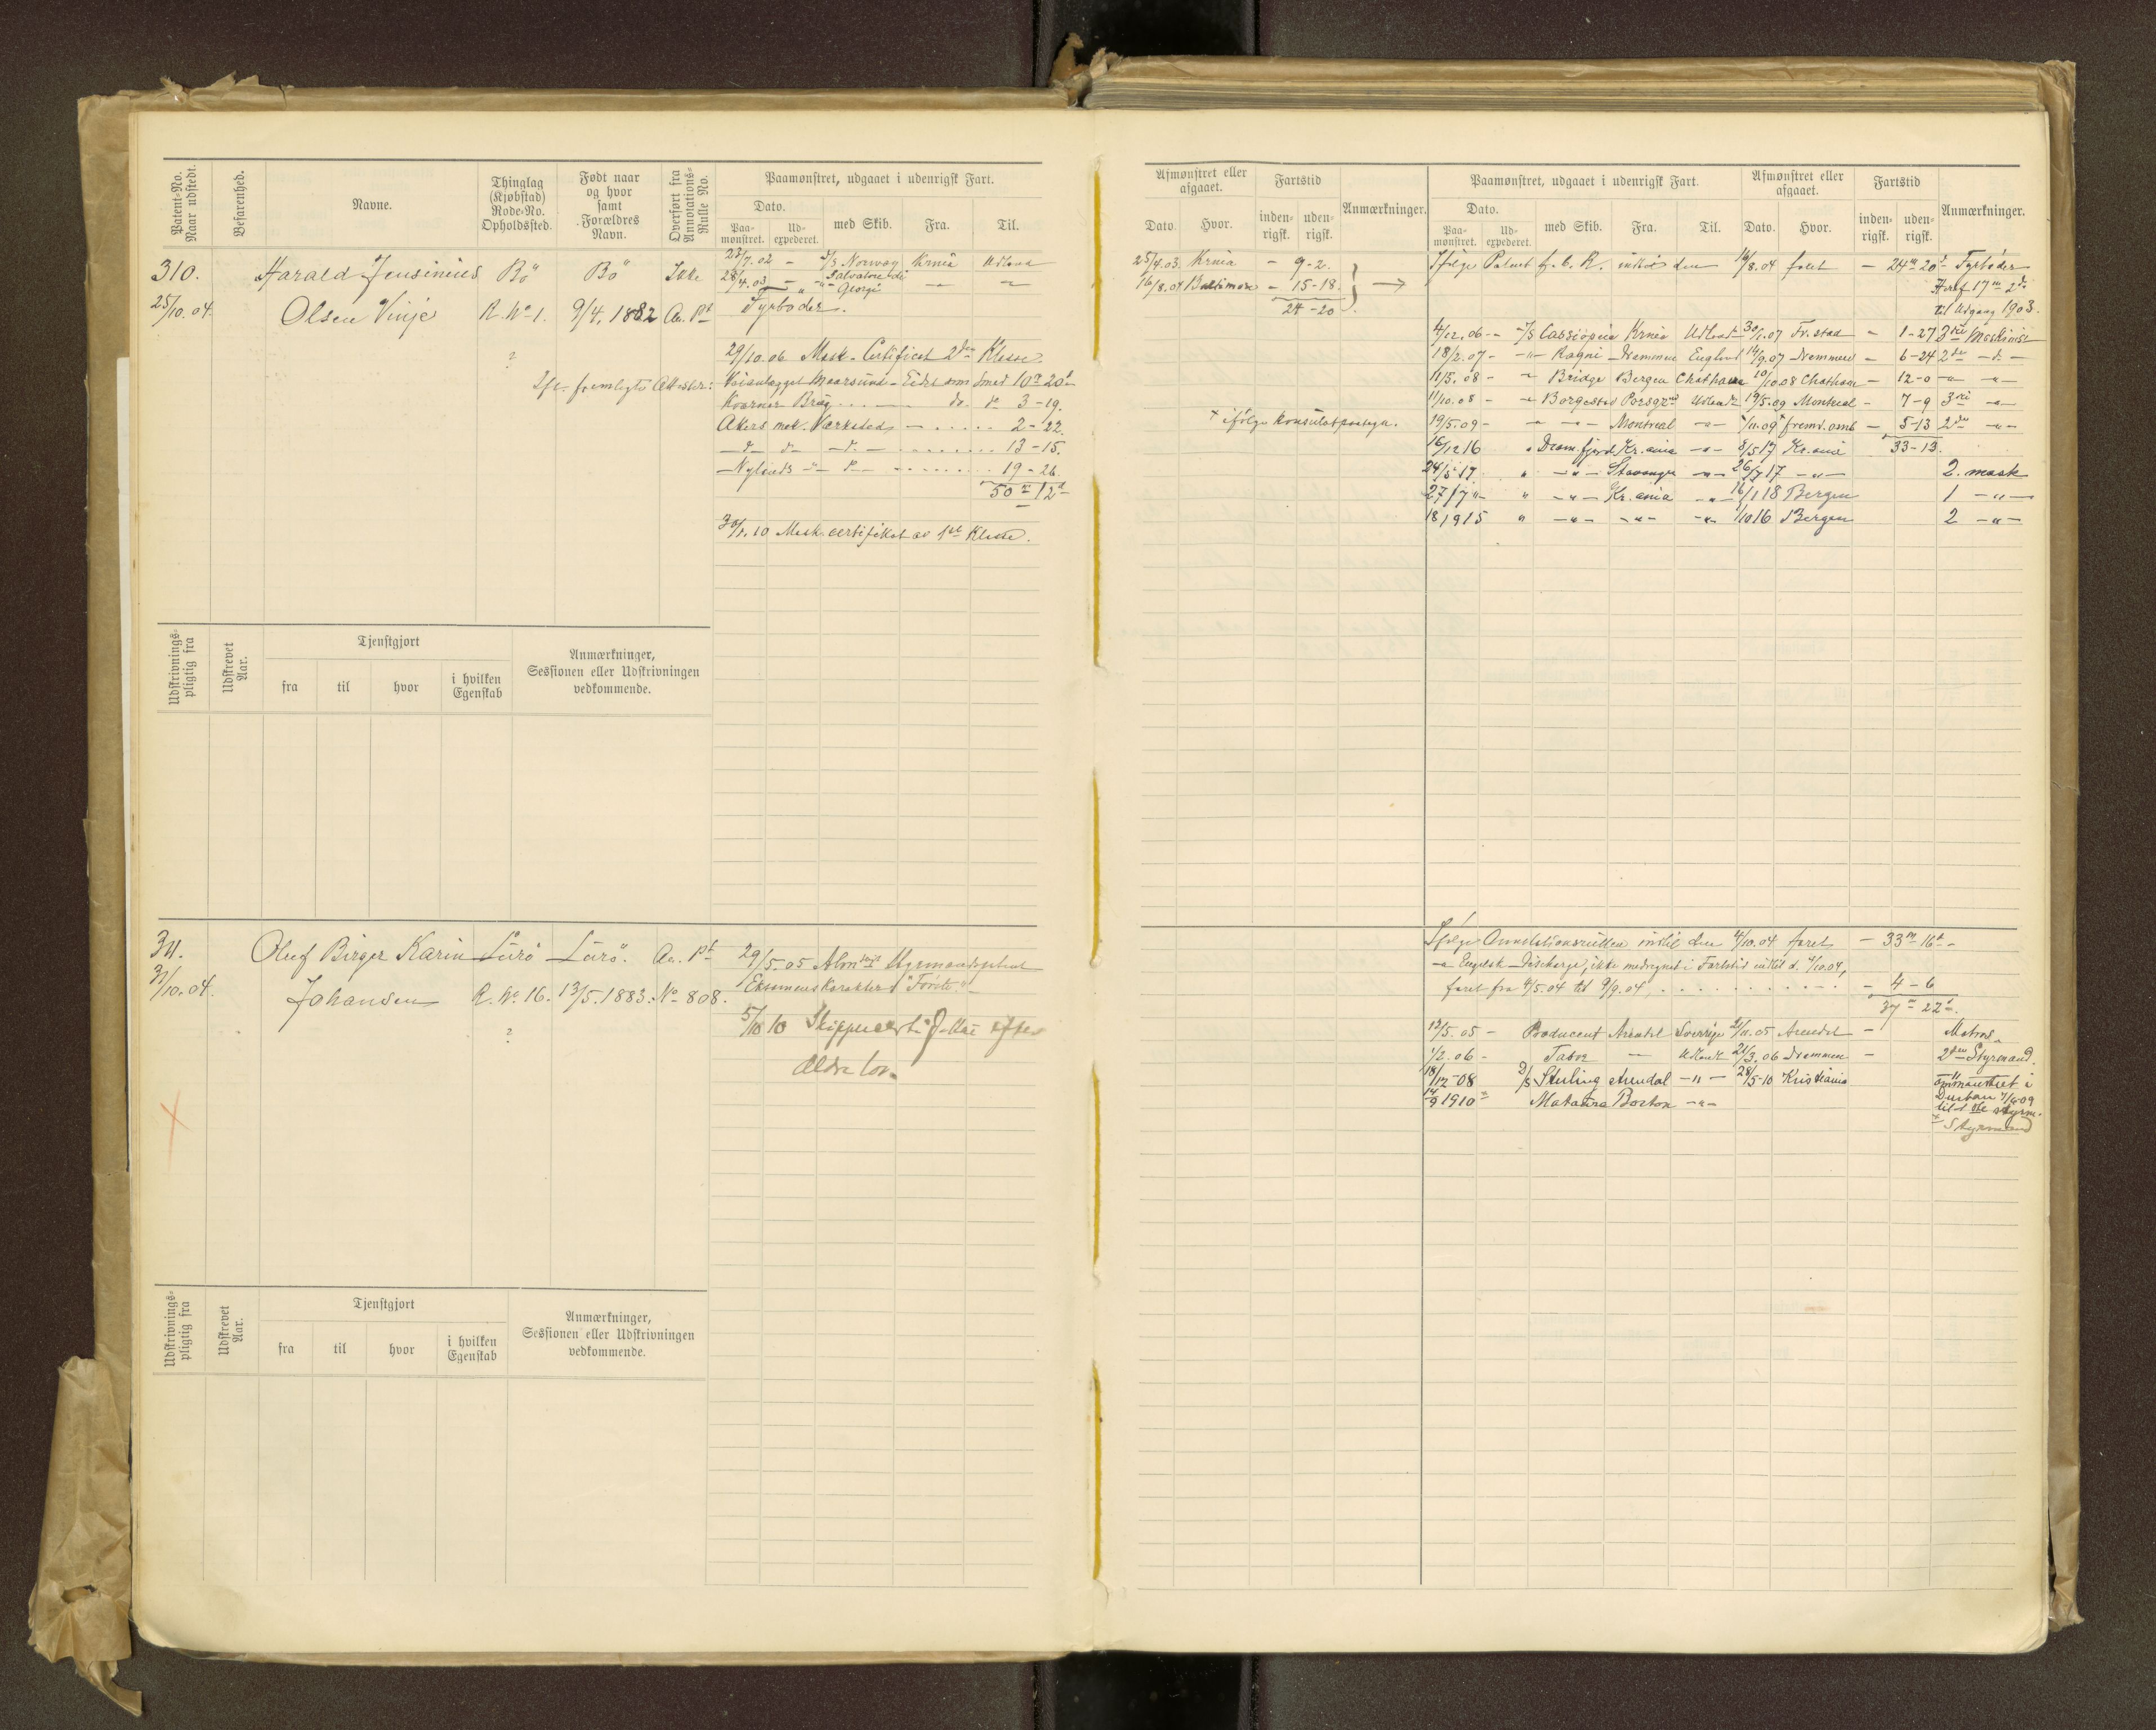 Patent-No. Naar udstedt.
Befarenhed.
Navne.
Thinglag (Kjøbstad) Rode-No. Opholdssted.
Født naar og hvor samt Forældres Navn.
Overført fra Annotations-Rulle No.
Paamønstret, udgaaet i udenrigsk Fart.
Dato.
Paa-mønstret.
Ud-expederet.
med Skib.
Fra.
Til.
310.
25/10.04.
Harald Jensinius
Olsen Vinje
Bö
R. No 1.
?
Bö
9/4. 1882
Ikke
An. Pt
23/7.02 - S/S Norway Krnia Udland
28/4.03 - -"- Salvatore di Georgi - -
Fyrböder.
29/10.06 Mask. Certificat 2den Klasse.
Ifl. fremlagte Attester: Veianlægget Maarsund - Eidet som Smed 10m 20d
Kværner Brug . . . - do. do 3-19.
Akers mek. Værksted, - . . . . . 2-22.
- d- d- -d- - . . . . . . . . 13-15.
- Nylands -"- d- - . . . . . . . . 19-26.
50m 12d
30/7.10 Mask. certifikat av 1ste Klasse.
Udskrivnings-pligtig fra
Udskrevet Aar.
Tjenstgjort
fra
til
hvor
i hvilken Egenskab
Anmærkninger, Sessionen eller Udskrivningen vedkommende.
311.
31/10.04.
Oluf Birger Karin
Johansen
Lurö
R. No 16.
?
Lurö.
13/5.1883.
An. Pt
No 808.
29/5.05 Alm. Styrmandsexamen
Examenskarakter "Første."
5/10 10 Skippercertifikat efter
ældre lov.
Udskrivnings-pligtig fra
Udskrevet Aar.
Tjenstgjort
fra
til
hvor
i hvilken Egenskab
Anmærkninger, Sessionen eller Udskrivningen vedkommende.
Afmønstret eller afgaaet.
Fartstid
Anmærkninger.
Dato.
Hvor.
inden-rigsk.
uden-rigsk.
Paamønstret, udgaaet i udenrigsk Fart.
Afmønstret eller afgaaet.
Fartstid
Anmærkninger.
Dato.
Paa-mønstret.
Ud-expederet.
med Skib.
Fra.
Til.
Dato.
Hvor.
inden-rigsk.
uden-rigsk.
25/4.03. Krnia - 9-2.
16/8.04 Baltimore - 15-18.
24-20
Ifølge Patent indtil den 16/8.04 faret - 24m 20d Fyrböder
Heraf 17m 2d
til Udgang 1903.
4/12.06 - -/S Cassiopeia Krnia Udland 30/1.07 Fr.stad - 1-27 3die Maskinist
18/2.07 - -"- Ragni Drammen England 14/9.07 Drammen - 6-24 2den -d-
11/5.08 - - Bridge Bergen Chatham 10/10.08 Chatham - 12-0 -"- -"-
11/10.08 - - Borgestad Porsgrnd Udland 19/5.09 Montreal - 7-9 3die -"-
× ifølge konsulatpaategn.
19/5.09 - -"- Montreal -"- 1/11.09 × fremd. omb - 5-13 2den -"-
33-13.
16/12 16 " Dramfjord Kr.ania -"- 8/5 17 Kr.ania
24/5 17 " -"- Stavanger -"- 26/7 17 -"- 2. mask
27/7 " " -"- Kr.ania -"- 16/1 18 Bergen 1 -"-
18/9 15 " -"- -"- -"- 1/10 16 Bergen 2 -"-
Ifølge Annotationsrullen indtil den 4/10.04 faret - 33m 16d
-"- Engelsk Discharge, ikke medregnet i Fartstid indtil d. 4/10.04,
faret fra 4/5.04 til 9/9.04 . . . . . . . . - 4-6
37m 22d.
13/5.05 - Producent Arendal Sverige 2/11.05 Arendal - Matros
1/2.06 - Tabor - Udland 21/3.06 Drammen - 2den Styrmand.
18/12-08 D/S Sterling Arendal -"- 28/5-10 Kristiania " ommønstret i
Durban 1/6-09
til 1ste styrm.
14/9 1910 " Mataura Boston -"- " Styrmand